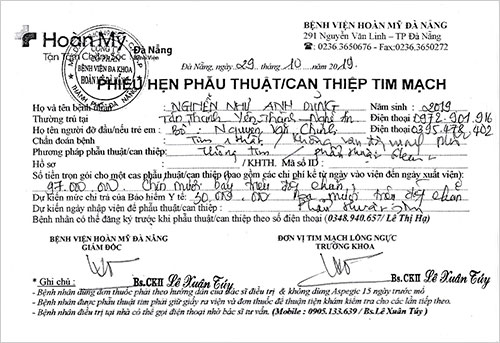 Hoàn Mỹ Đà Nẵng
Tận Tâm Chăm Sóc
BỆNH VIỆN ĐA KHOA
BỆNH VIỆN HOÀN MỸ ĐÀ NẴNG
291 Nguyễn Văn Linh – TP Đà Nẵng
☎: 0236.3650676 - Fax:0236.3650272
Đà Nẵng, ngày 29 tháng 10 / 2019
PHIẾU HẸN PHẪU THUẬT/CAN THIỆP TIM MẠCH
Họ và tên bệnh nhân: NGUYỄN NHƯ ANH DŨNG Năm sinh: 2019
Thường trú tại Tân Thanh Yên Thành Nghệ An Điện thoại 0978.901.916
Họ tên người đỡ đầu/nếu trẻ em: Bố: Nguyễn Văn Chinh Điện thoại 0395.478.402
Chẩn đoán bệnh : Tim / Không van ĐM phổi
Phương pháp phẫu thuật/can thiệp: Thông tim / phẫu thuật
Hồ sơ /KHTH. Mã số ID :
Số tiền trọn gói cho một cas phẫu thuật/can thiệp (bao gồm các chi phí kể từ ngày vào viện đến ngày xuất viện):
97.000.000 Chín mươi bảy triệu đg chẵn
Dự kiến mức chi trả của Bảo hiểm Y tế : 30.000.000 Ba mươi triệu đg chẵn
Dự kiến ngày nhập viện để phẫu thuật/can thiệp :
Bệnh nhân có thể đăng ký trước khi phẫu thuật/can thiệp theo số điện thoại (0348.940.657/ Lê Thị Hạ)
BỆNH VIỆN HOÀN MỸ ĐÀ NẴNG
GIÁM ĐỐC
ĐƠN VỊ TIM MẠCH LỒNG NGỰC
TRƯỞNG KHOA
Bs.CKII Lê Xuân Túy
Bs.CKII Lê Xuân Túy
* Ghi chú :
- Bệnh nhân dùng đơn thuốc phải theo hướng dẫn của Bác sĩ điều trị & không dùng Aspegic 15 ngày trước mổ
- Bệnh nhân được phẫu thuật tim phải giữ giấy ra viện và đơn thuốc để thuận tiện khám kiểm tra cho các lần tiếp theo.
- Bệnh nhân điều trị tại nhà có thể gọi điện thoại nhờ bác sĩ tư vấn. (Mobile : 0905.133.639 / Bs.Lê Xuân Túy )